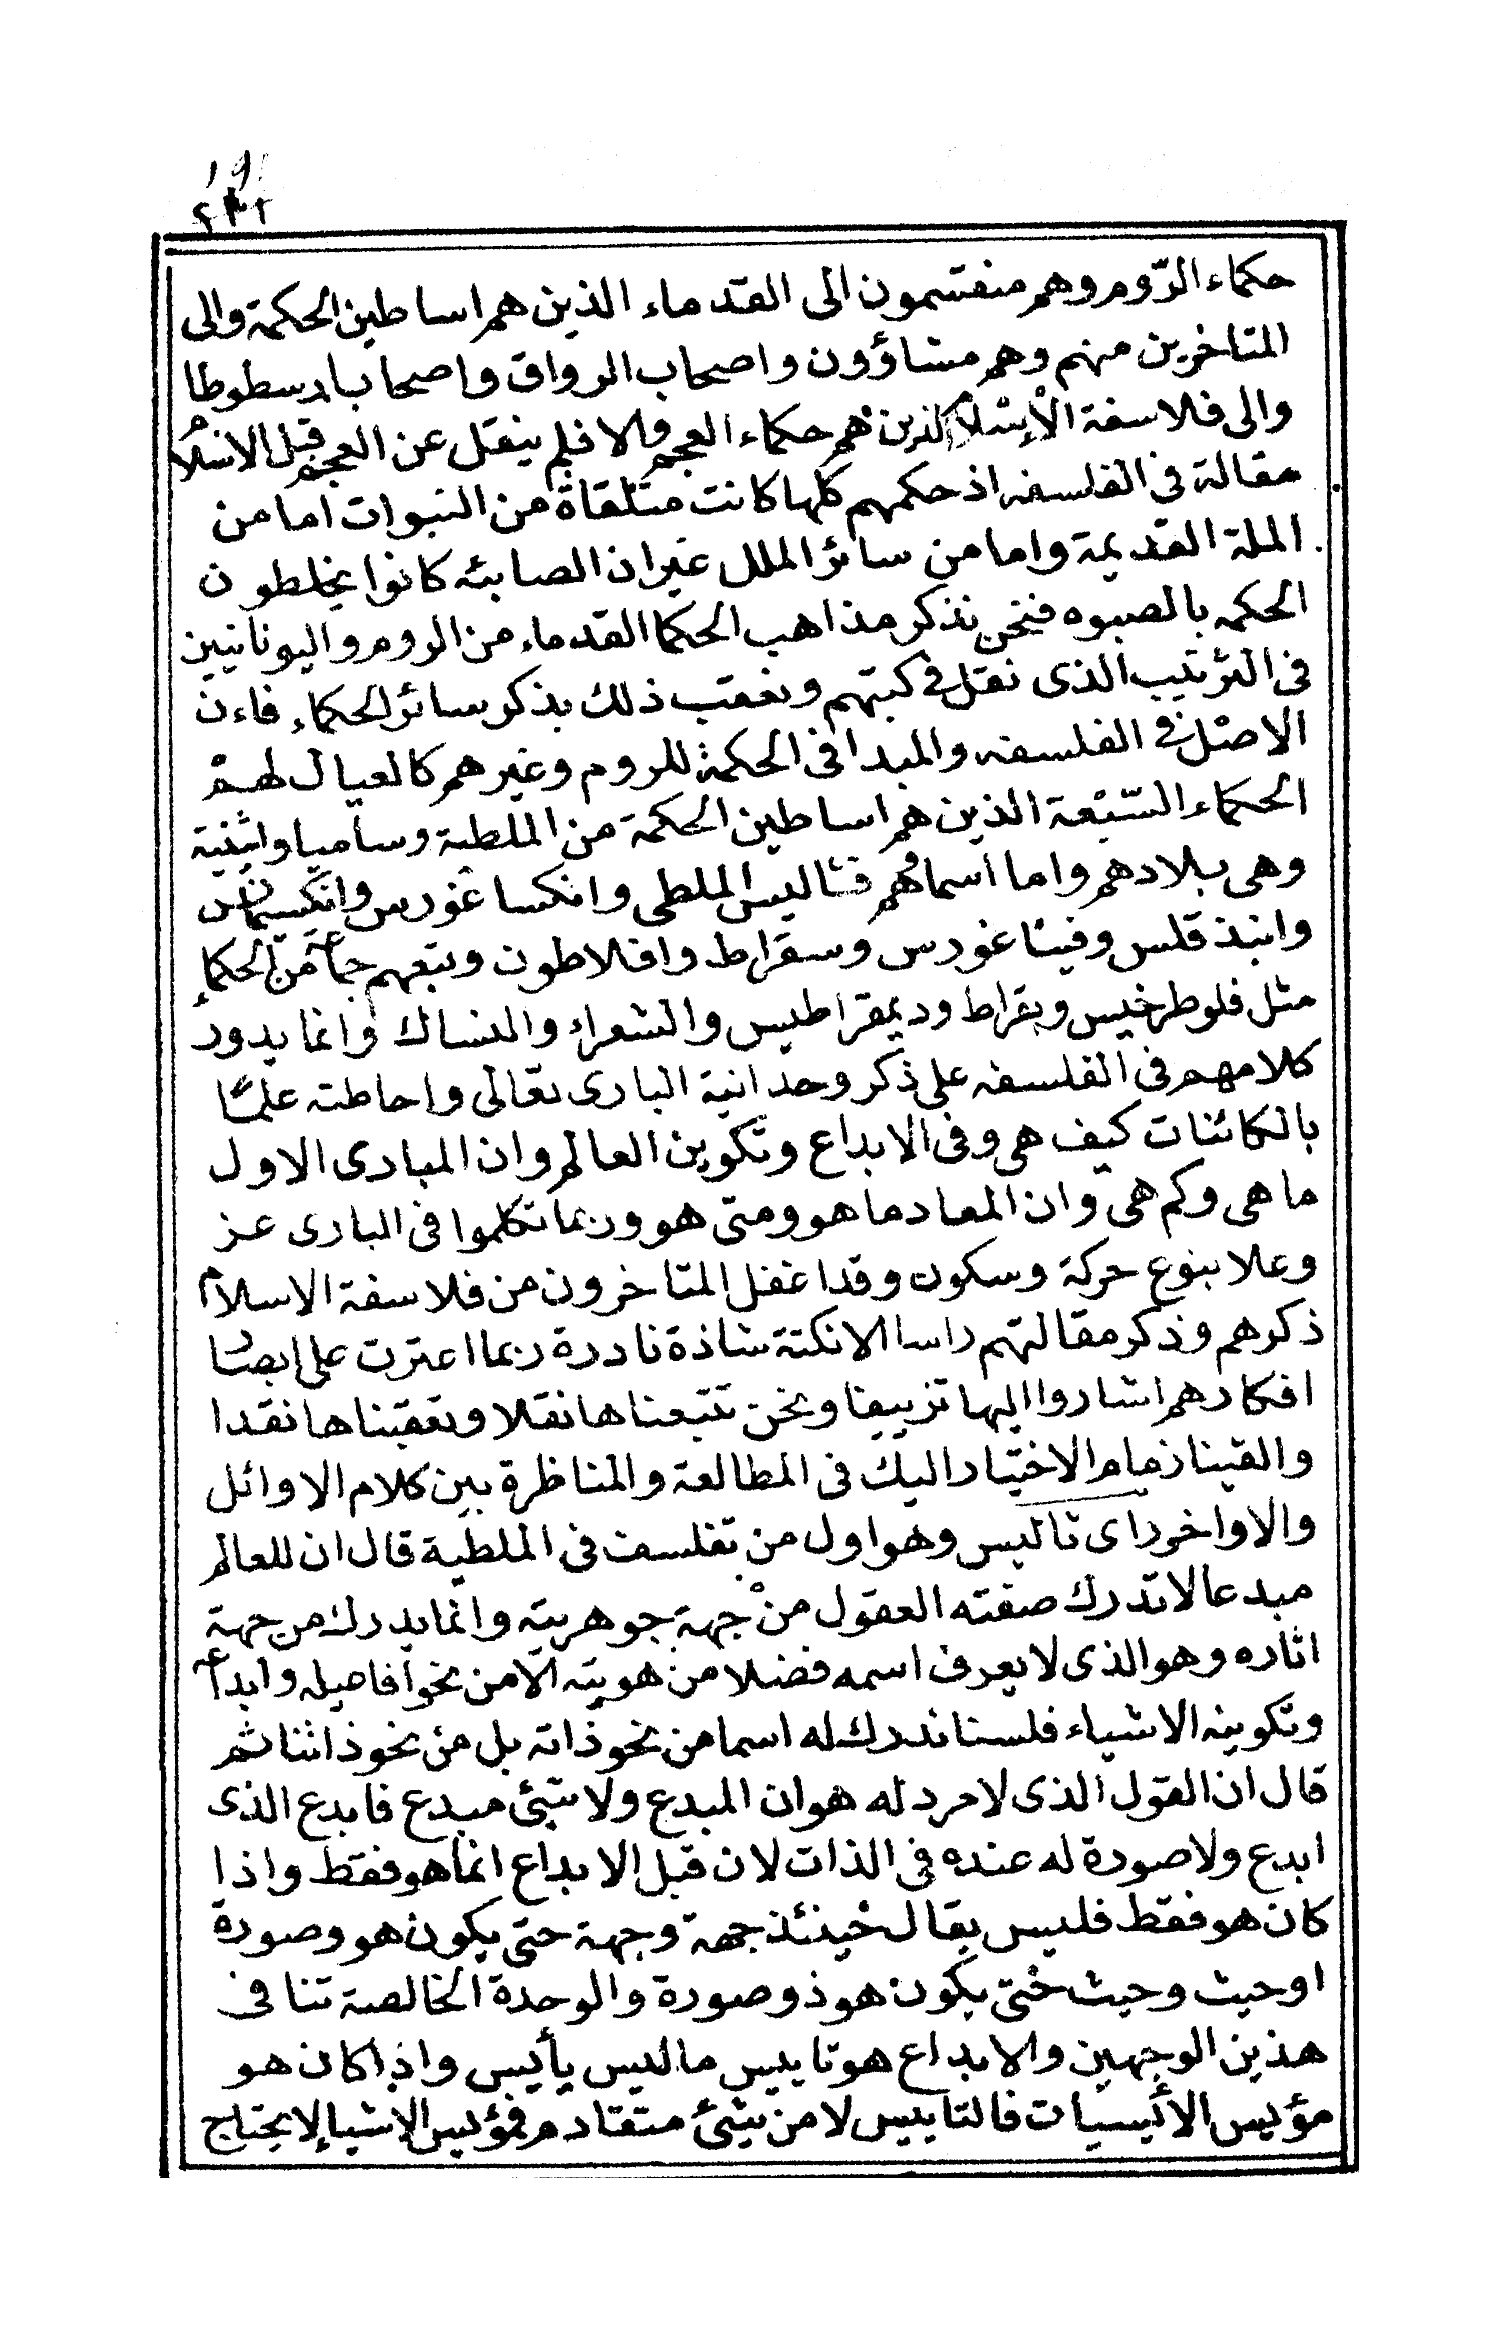 حكماء الرّوم وهم منقسمون الى القدماء الذين هم اساطين الحكمة والى
المتاخرين منهم وهم مشاؤون واصحاب الرواق واصحاب ارسطوطا
والى فلاسفة الاِسْلام الذين هم حكماء العجم والا فلم ينقل عن العجم قبل الاسلام
مقالة فى الفلسفه اذ حكمهم كلها كانت متلقاة من النبوات اما من
الملة القديمة واما من سائر الملل غيران الصابئه كانوا يخلطون
الحكمه بالصبوه فنحن نذكر مذاهب الحكما القدماء من الروم واليونانيين
فى الترتيب الذى نقل فى كتبهم ونعقب ذلك بذكر سائر الحكماء فاءن
الاصْل فى الفلسفه والمبدا فى الحكمة للروم وغيرهم كالعيال لهمْ
الحكماء السّبْعة الذين هم اساطين الحكمة من الملطية وساميا واثينية
وهى بلادهم واما اسماؤهم فثاليس الملطى وانكساغورس وانكسيمانس
وانبذقلس وفيثاغورس وسقراط وافلاطون وتبعهم جماعة من الحكماء
مثل فلوطرخيس وبقراط وديمقراطيس والشعراء والنساك وانما يدور
كلامهم فى الفلسفه على ذكر وحدانية البارى تعالى واحاطته علمًا
بالكائنات كيف هى وفى الابداع وتكوين العالم وان المبادى الاول
ما هى وكم هى وان المعاد ما هو ومتى هو وربما تكلموا فى البارى عز
وعلا بنوع حركة وسكون وقد اغفل المتاخرون من فلاسفة الاسلام
ذكرهم وذكر مقالتهم راسا الا نكتة شاذة نادرة ربما اعترت على ابصار
افكارهم اشاروا اليها تزييفا ونحن تتبعناها نقلا وتعقبناها نقدا
والقينا زمام الاختيار اليك فى المطالعة والمناظرة بين كلام الاوائل
والاواخر راى ثاليس وهو اول من تفلسف فى الملطية قال ان للعالم
مبدعا لا تدرك صفته العقول منْ جهة جوهريته وانما يدرك من جهة
اثاره وهو الذى لا يعرف اسمه فضلا من هويته الا من نحو افاصيله وابداعه
وتكوينه الاشياء فلسنا ندرك له اسما من نحو ذاته بل من نحو ذاتنا ثم
قال ان القول الذى لا مرد له هو ان المبدع ولا شئ مبدع فابدع الذى
ابدع ولا صورة له عنده فى الذات لان قبل الابداع انما هو فقط واذا
كان هو فقط فليس يقال حينئذ جهة وجهة حتى يكون هو وصورة
اوحيث وحيث حتى يكون هو ذو صورة والوحدة الخالصة تنافى
هذين الوجهين والابداع هو تاييس ما ليس بأيس واذا كان هو
مؤيس الأيسيات فالتاييس لا من شئ متقادم فمؤيس الاشياء لا يحتاج